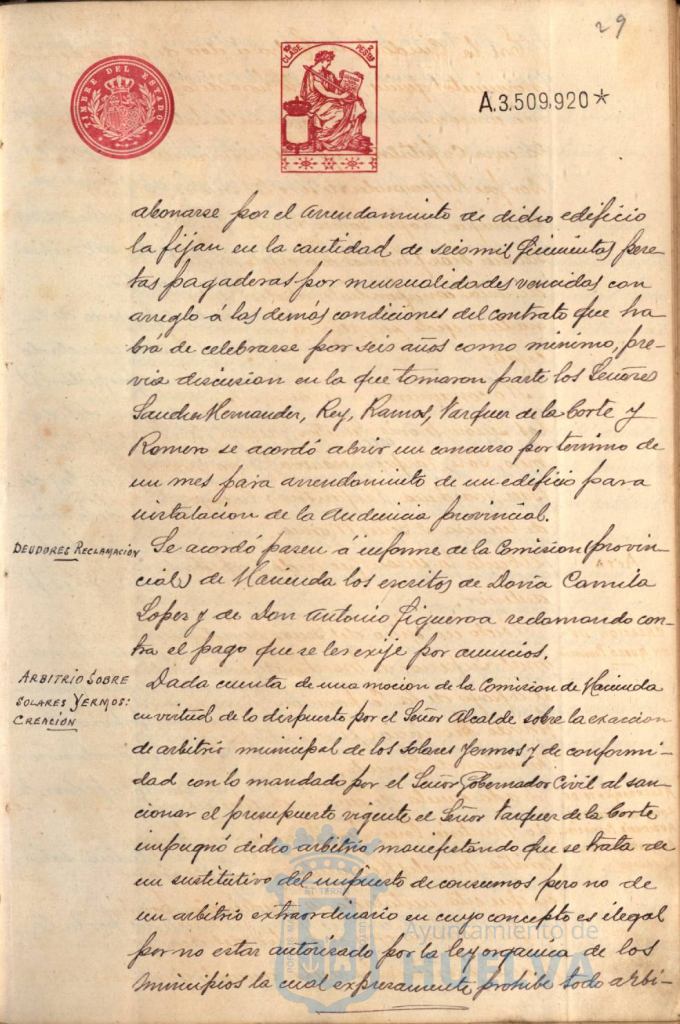 29
TIMBRE DEL ESTADO
CLASE
PESTAS
A.3.509,920*
abonarse por el arrendamiento de dicho edificio
la fijan en la cantidad de seis mil quinientas pese-
tas pagaderas por mensualidades vencidas con
arreglo á las demás condiciones del contrato que ha
brá de celebrarse por seis años como minimo, pre-
via discusion en la que tomaron parte los Señores
Sanchez Hernandez, Rey, Ramos, Vazquez de la Corte y
Romero se acordó abrir un concurso por termino de
un mes para arrendamiento de un edificio para
instalacion de la Audiencia provincial.
DEUDORES RECLAMACIÓN
Se acordó pasen á informe de la Comision (provin-
cial) de Hacienda los escritos de Doña Camila
Lopez y de Don Antonio Figueroa reclamando con-
tra el pago que se les exije por anuncios.
ARBITRIO SOBRE
SOLARES YERMOS:
CREACIÓN
Dada cuenta de una mocion de la Comision de Hacienda
en virtud de lo dispuesto por el Señor Alcalde sobre la exaccion
de arbitrio municipal de los solares yermos y de conformi-
dad con lo mandado por el Señor Gobernador Civil al san-
cionar el presupuesto vigente el Señor Vazquez de la Corte
impugnó dicho arbitrio manifestando que se trata de
un sustitutivo del impuesto de consumos pero no de
un arbitrio extraordinario en cuyo concepto es ilegal
por no estar autorizado por la ley organica de los
Municipios la cual expresamente prohibe todo arbi-
Ayuntamiento de
HUELVA